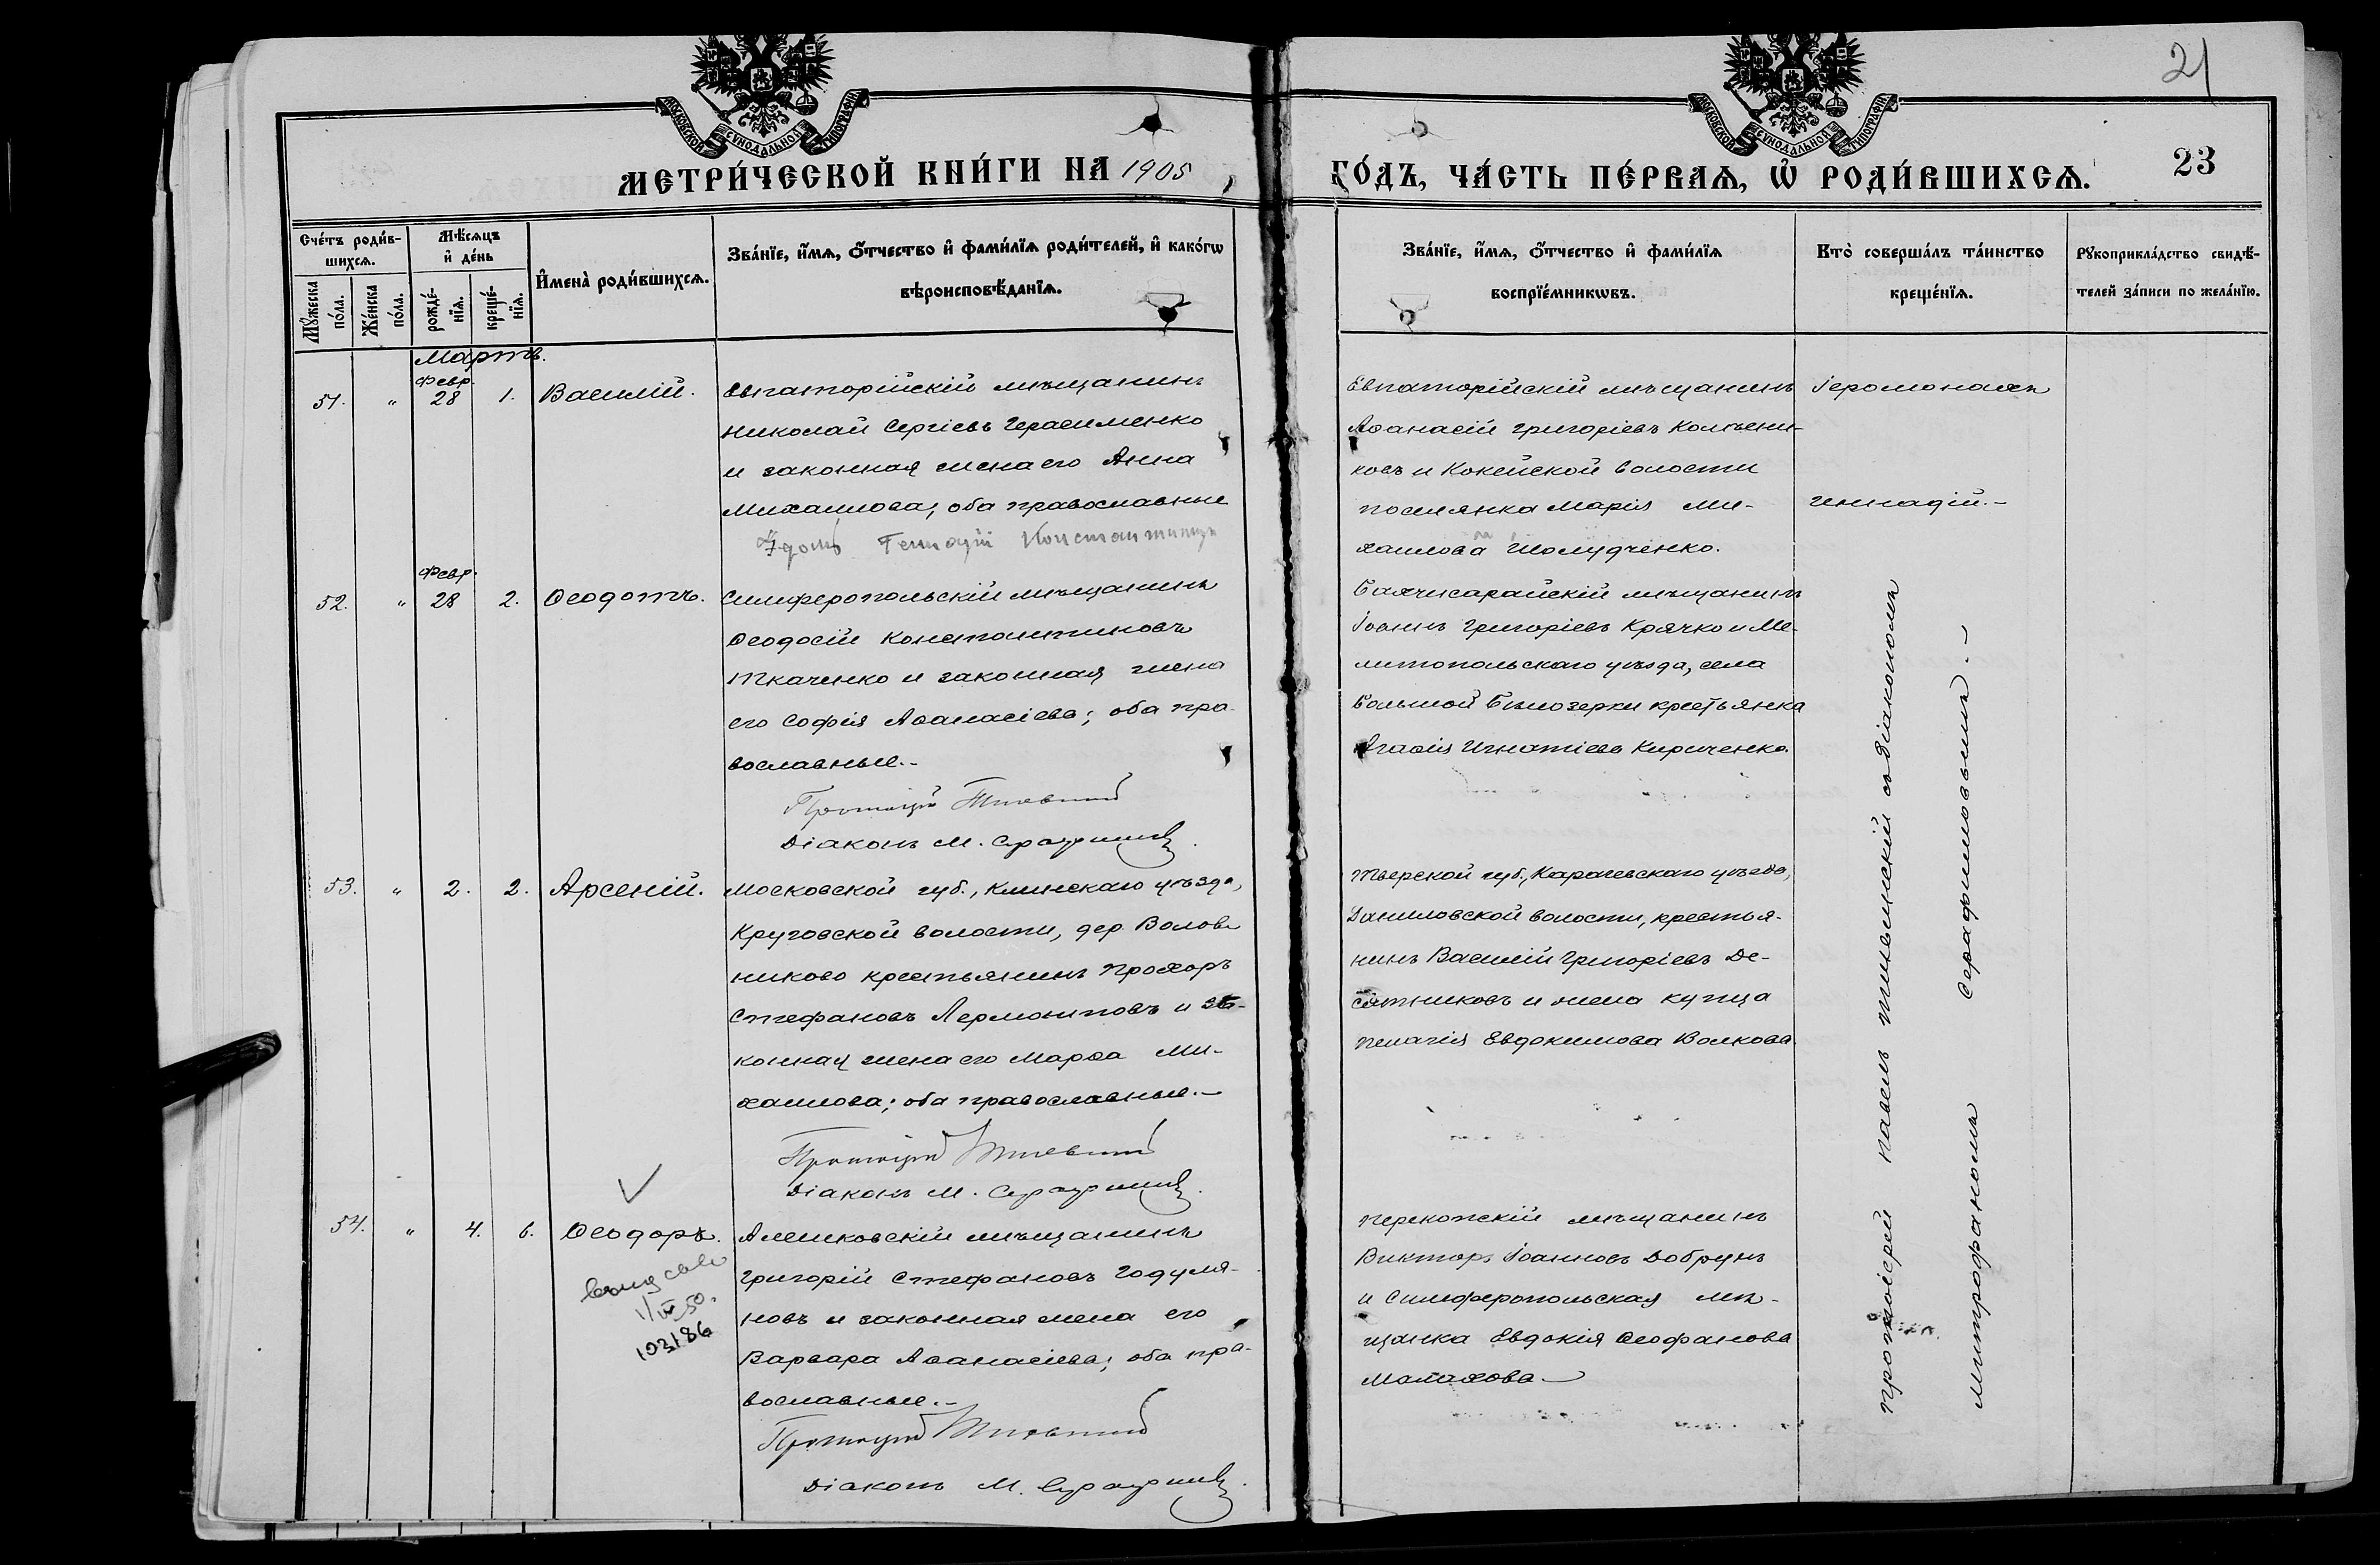 21
МОСКОВСКОЙ СѴНОДАЛЬНОЙ ТИПОГРАФІИ
МОСКОВСКОЙ СѴНОДАЛЬНОЙ ТИПОГРАФІИ
МЕТРИ́ЧЕСКОЙ КНИ́ГИ НА 1905
ГО́ДЪ, ЧА́СТЬ ПЕ́РВАѦ, Ѡ҆ РОДИ́ВШИХСѦ.
23
Сче́тъ роди́в-
шихсѧ.
Мꙋ́жеска
по́ла.
Же́нска
по́ла.
Мѣ́сѧцъ
и҆ де́нь
рожде́-
нїѧ.
креще́-
нїѧ.
И҆мена̀ роди́вшихсѧ.
Зва́нїе, и҆́мѧ, ѻ҆́тчество и҆ фами́лїѧ роди́телей, и҆ како́гѡ
вѣроисповѣ́данїѧ.
Зва́нїе, и҆́мѧ, ѻ҆́тчество и҆ фами́лїѧ
воспрїе́мникѡвъ.
Кто̀ соверша́лъ та́инство
креще́нїѧ.
Рꙋкоприкла́дство свидѣ́-
телей за́писи по жела́нїю.
Мартъ.
51. " Февр. 28 1. Василій.
Евпаторійскій мѣщанинъ
Николай Сергіевъ Герасименко
и законная жена его Анна
Михаилова; оба православные
Геннадій
Евпаторійскій мѣщанинъ
Аѳанасій Григоріевъ Колѣсни-
ковъ и Кокейской волости
поселянка Марія Ми-
хаилова Шолудченко.
Іеромонахъ
Геннадій.-
52. " Февр. 28 2. Ѳеодотъ.
Симферопольскій мѣщанинъ
Ѳеодосій Константиновъ
Ткаченко и законная жена
его Софія Аѳанасіева; оба пра-
вославные.-
Протоіерей
Діаконъ М.
Бахчисарайскій мѣщанинъ
Іоаннъ Григоріевъ Крячко и Ме-
литопольскаго уѣзда, села
Большой Бѣлозерки крестьянка
Агаѳія Игнатіева Кириченко.
53. " 2. 2. Арсеній.
Московской губ., Клинскаго уѣзда,
Круговской волости, дер. Волов-
никово крестьянинъ Прохоръ
Стефановъ Лермонтовъ и за-
конная жена его Марѳа Ми-
хаилова; оба православные.-
Протоіерей
Діаконъ М.
Тверской губ., Карачевскаго уѣзда,
Даниловской волости, крестья-
нинъ Василій Григоріевъ Де-
сятниковъ и жена купца
Пелагія Евдокимова Волкова
54. " 4. 6. Ѳеодоръ.
103186
Алешковскій мѣщанинъ
Григорій Стефановъ Годуля-
новъ и законная жена его
Варвара Аѳанасіева; оба пра-
вославные.-
Протоіерей
Діаконъ М.
Перекопскій мѣщанинъ
Викторъ Іоанновъ Добрунъ
и Симферопольская мѣ-
щанка Евдокія Ѳеофанова
Малахова-
Протоіерей Павелъ съ діакономъ
Митрофаномъ Серафимовымъ.-